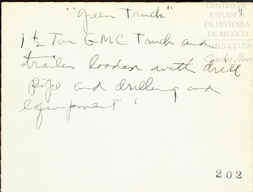 "Green Truck"
1 ½ Ton GMC Truck and
trailer loaded with drill
pipe and drilling and
equipment.
CENTRO DE
ESTUDIOS
DE HISTORIA
DE MEXICO
FUNDACIÓN
Carlos Slim
202